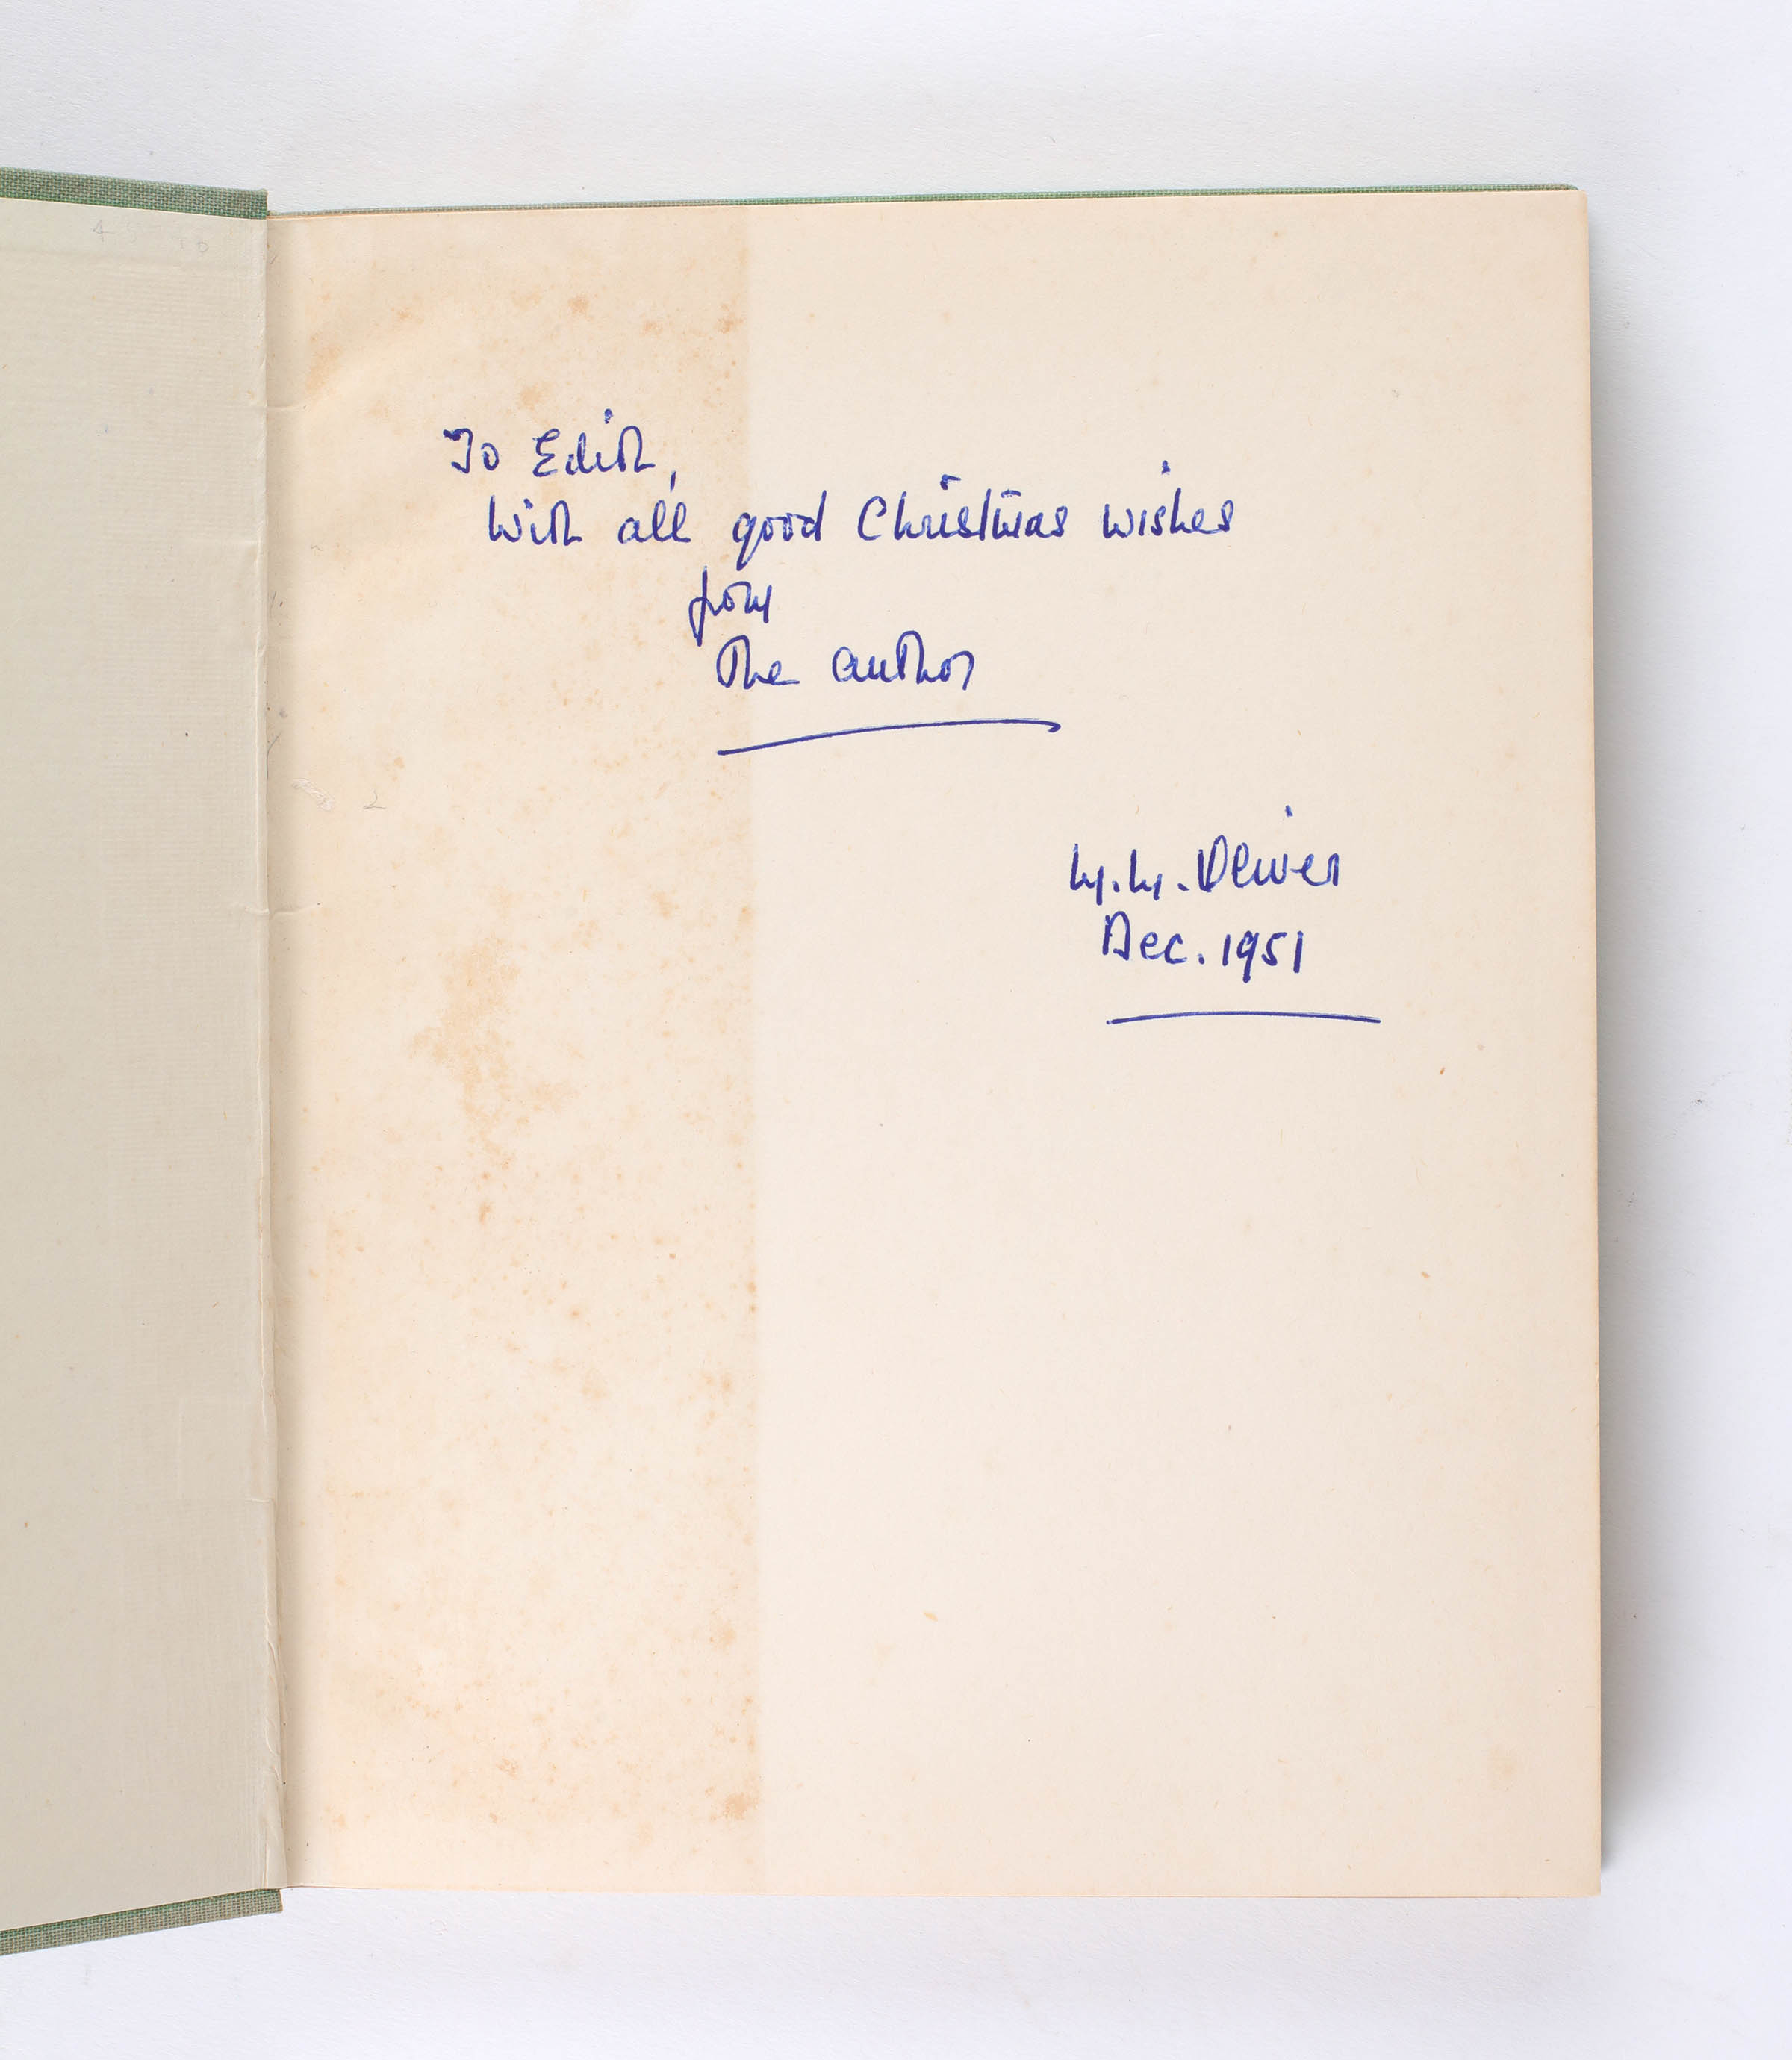 To Edith,
With all good Christmas wishes
from
The author
M.M. Oliver
Dec. 1951